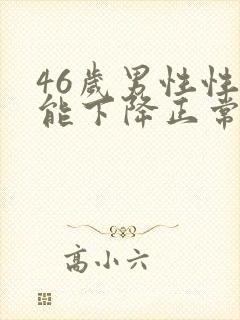 46岁男性性
能下降正常
高小六